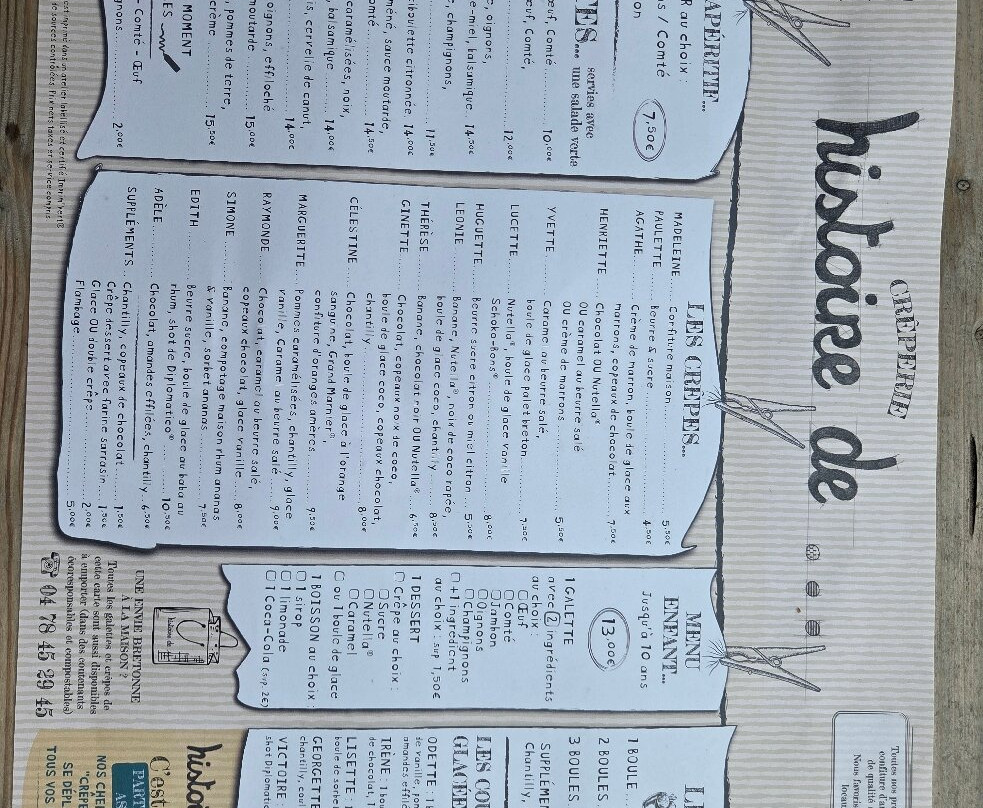 CRÊPERIE
histoire de
APÉRITIF...
R au choix
is / Comté
on
7,50€
servies avec
une salade verte
œuf, Comté 10,00€
œuf, Comté,
12,00€
e, oignons,
e, champignons,
11,50€
e-miel, balsamique 14,50€
iboulette citronnée, 14,00€
umé, sauce moutarde,
omté 14,50€
caramélisées, noix,
balsamique 14,00€
is, cervelle de canut,
14,00€
oignons, effiloché
moutarde 15,00€
, pommes de terre,
crème 15,50€
MOMENT
ES
- Comté - Œuf
gnons 2,00€
LES CRÊPES...
MADELEINE Confiture maison 5,50€
PAULETTE Beurre & sucre 4,50€
AGATHE Crème de marron, boule de glace aux
marrons, copeaux de chocolat 7,50€
HENRIETTE Chocolat OU Nutella®
OU caramel au beurre salé
OU crème de marrons 5,50€
YVETTE Caramel au beurre salé,
boule de glace palet breton 7,50€
LUCETTE Nutella®, boule de glace vanille
Schoko-Bons® 8,00€
HUGUETTE Beurre sucre citron ou miel citron 5,50€
LEONIE Banane, Nutella®, noix de coco rapée,
boule de glace coco, chantilly 8,50€
THÉRÈSE Banane, chocolat noir OU Nutella® 6,50€
GINETTE Chocolat, copeaux noix de coco,
boule de glace coco, copeaux chocolat,
chantilly 8,00€
CÉLESTINE Chocolat, boule de glace à l'orange
sanguine, Grand Marnier®,
confiture d'oranges amères 9,50€
MARGUERITE Pommes caramélisées, chantilly, glace
vanille, Caramel au beurre salé 9,00€
RAYMONDE Chocolat, caramel au beurre salé,
copeaux chocolat, glace vanille 8,00€
SIMONE Banane, compotage maison rhum ananas
& vanille, sorbet ananas 7,50€
EDITH Beurre sucre, boule de glace au baba au
rhum, shot de Diplomatico® 10,50€
ADÈLE Chocolat, amandes effilées, chantilly 6,50€
SUPPLÉMENTS Chantilly, copeaux de chocolat 1,50€
Crêpe dessert avec farine sarrasin 1,50€
Glace OU double crêpe 2,00€
Flambage 5,00€
MENU
ENFANT...
Jusqu'à 10 ans
13,00€
1 GALETTE
avec 2 ingrédients
au choix :
Œuf
Comté
Jambon
Oignons
Champignons
+1 ingrédient
au choix : sup 1,50€
1 DESSERT
Crêpe au choix :
Sucre
Nutella®
Caramel
ou 1 boule de glace
1 BOISSON au choix :
1 sirop
1 limonade
1 Coca-Cola (sup 2€)
UNE ENVIE BRETONNE
À LA MAISON ?
Toutes les galettes et crêpes de
cette carte sont aussi disponibles
à emporter (dans des contenants
écoresponsables et compostables)
04 78 45 29 45
1 BOULE
2 BOULES
3 BOULES
SUPPLÉMEN
Chantilly,
LES COU
GLACÉE
ODETTE : 1 b
de vanille, pom
amandes effil
IRÈNE : 1 bou
de chocolat, 1
LISETTE : 1
boule de s
GEORGETTE
chantilly, coul
VICTOIRE :
shot Diplomat
histoi
C'est
PART
AS
NOS CHE
"CRÊPE
SE DÉPL
TOUS VOS
Toutes nos pr
confiture d'a
de qualité
Nous favoris
locau